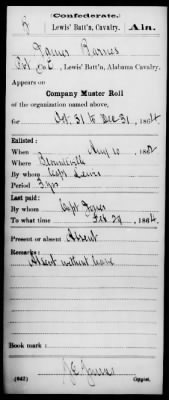 (Confederate.)
Lewis' Batt'n, Cavalry. Ala.
James
Pvt, Co. E, Lewis' Batt'n, Alabama Cavalry.
Appears on
Company Muster Roll
of the organization named above,
for Oct. 31 to Dec 31, 1864
Enlisted:
When May 10, 1862
Where
By whom Capt Lewis
Period 3 yrs
Last paid:
By whom Capt
To what time Feb 29, 1864.
Present or absent Absent
Remarks:
Absent without leave
Book mark:
(642) Copyist.